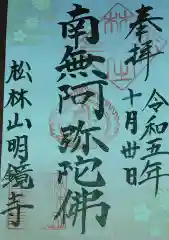 奉拝
令和五年
十月廿日
南無阿弥陀佛
松林山明鏡寺